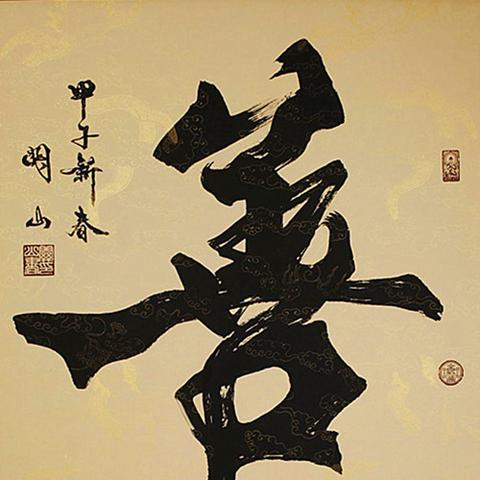 善
甲子新春
明山